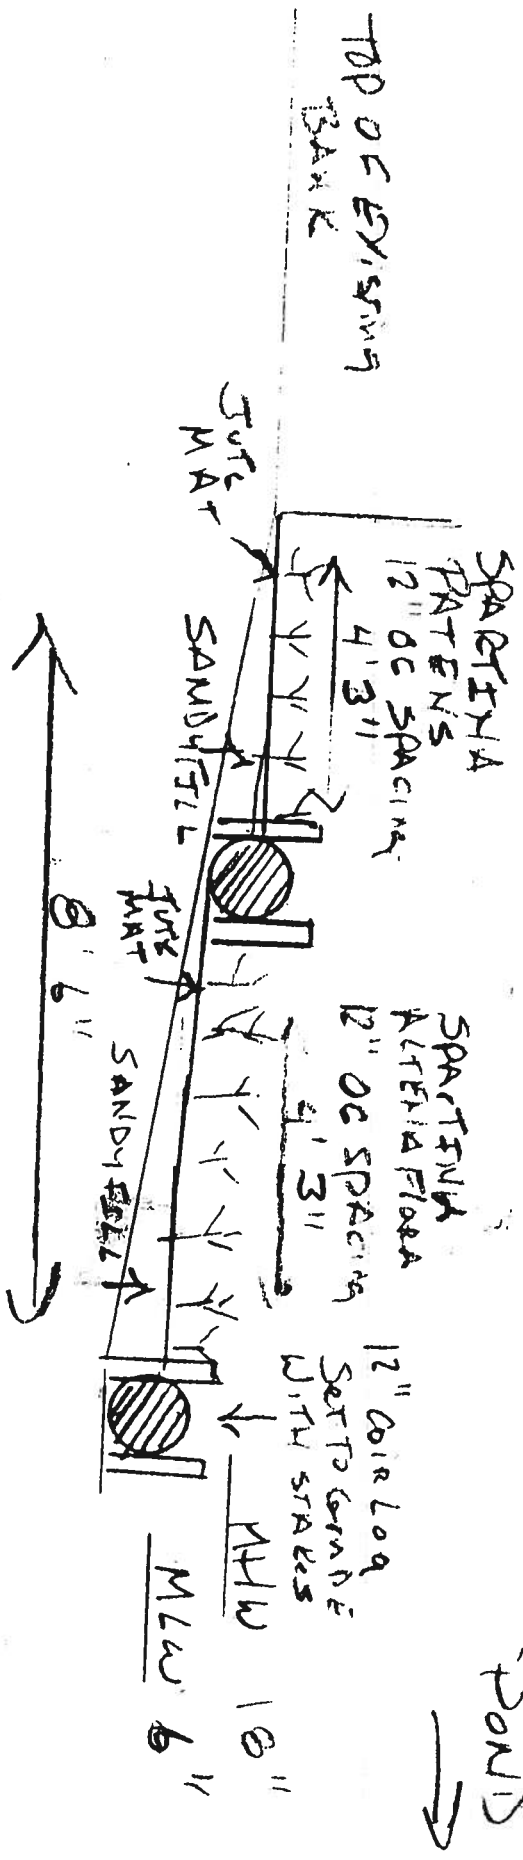 TOP OF EXISTING
BANK
JUTE
MAT
SPARTINA
PATENS
12" OC SPACING
4'3"
SANDY FILL
JUTE
MAT
8'6"
SPARTINA
ALTENAFLORA
12" OC SPACING
4'3"
SANDY FILL
12" COIR LOG
SET TO GRADE
WITH STAKES
MHW 18"
MLW 6"
POND